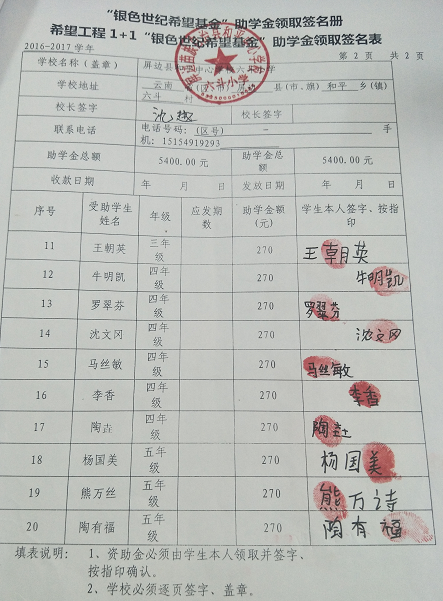 “银色世纪希望基金”助学金领取签名册
希望工程1+1“银色世纪希望基金”助学金领取签名表
2016-2017 学年 第 2 页 共 2 页
学校名称(盖章) 屏边县和平 中心 校六斗 小学
学校地址 云南 省 县(市、旗) 和平 乡(镇)
六斗 村
校长签字 校长签字
联系电话 电话号码:(区号) — 手
机:15154919293
助学金总额 5400.00 元 助学金总额 5400.00 元
收款日期 年 月 日 发放日期 年 月 日
序号 受助学生姓名 年级 应发期数 助学金额(元) 学生本人签字、按指印
11 王朝英 三年级 270 王朝英
12 牛明凯 四年级 270 牛明凯
13 罗翠芬 四年级 270 罗翠芬
14 沈文冈 四年级 270 沈文冈
15 马丝敏 四年级 270 马丝敏
16 李香 四年级 270 李香
17 陶垚 四年级 270 陶垚
18 杨国美 五年级 270 杨国美
19 熊万丝 五年级 270 熊万诗
20 陶有福 五年级 270 陶有福
填表说明: 1、资助金必须由学生本人领取并签字、
按指印确认。
2、学校必须逐页签字、盖章。